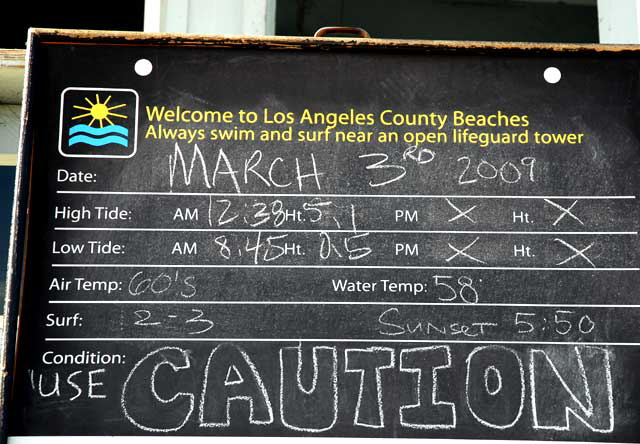 Welcome to Los Angeles County Beaches
Always swim and surf near an open lifeguard tower
Date: MARCH 3RD 2009
High Tide: AM 12:38 Ht. 5.1 PM X Ht. X
Low Tide: AM 8:45 Ht. 0.5 PM X Ht. X
Air Temp: 60's Water Temp: 58°
Surf: 2-3 SUNSET 5:50
Condition:
USE CAUTION